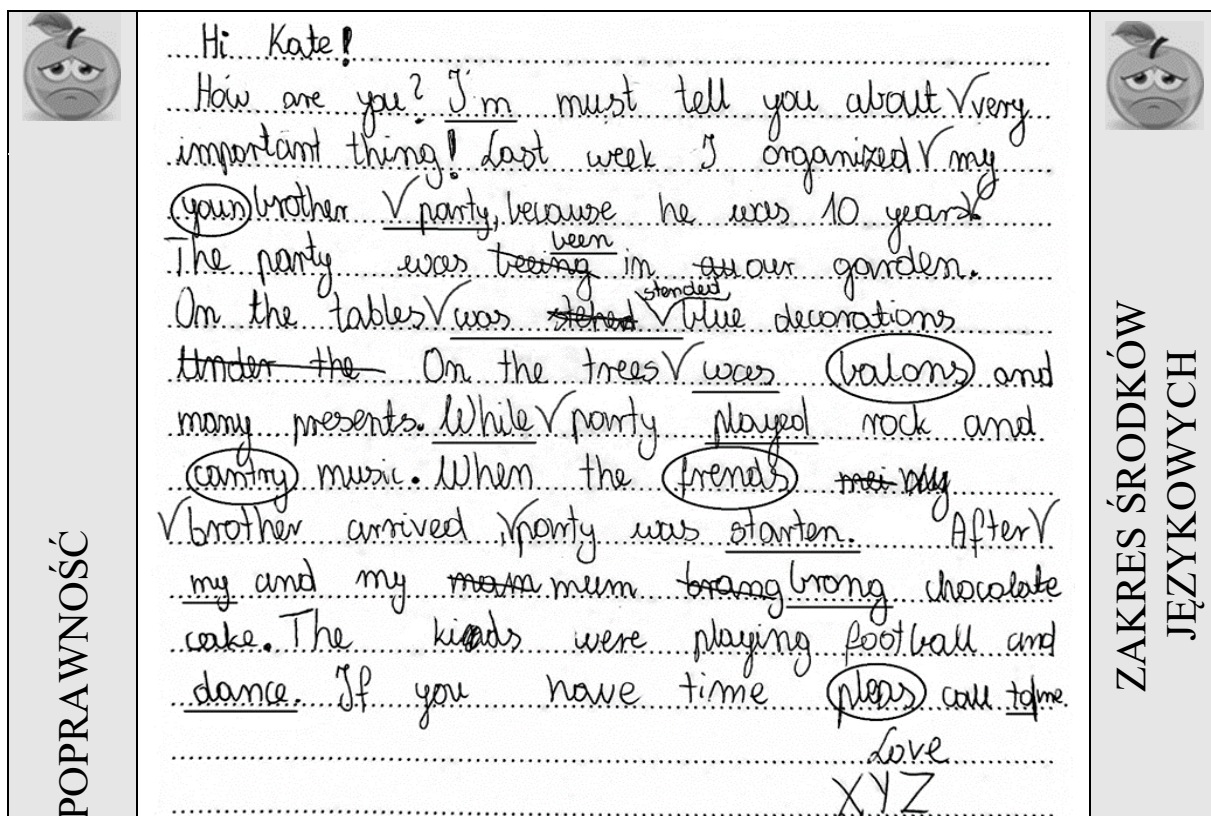 Hi Kate!
How are you? I'm must tell you about √ very
important thing! Last week I organized √ my
youn brother √ party, because he was 10 years √.
The party was beeing been in our garden.
On the tables √ was stended √ blue decorations
Under the On the trees √ was balons and
many presents. While √ party played rock and
cantry music. When the frends my
√ brother arrived, √ party was starten. After √
my and my mum brang brong chocolate
cake. The kids were playing football and
dance. If you have time pleas call to me.
Love
XYZ
POPRAWNOŚĆ
ZAKRES ŚRODKÓW
JĘZYKOWYCH